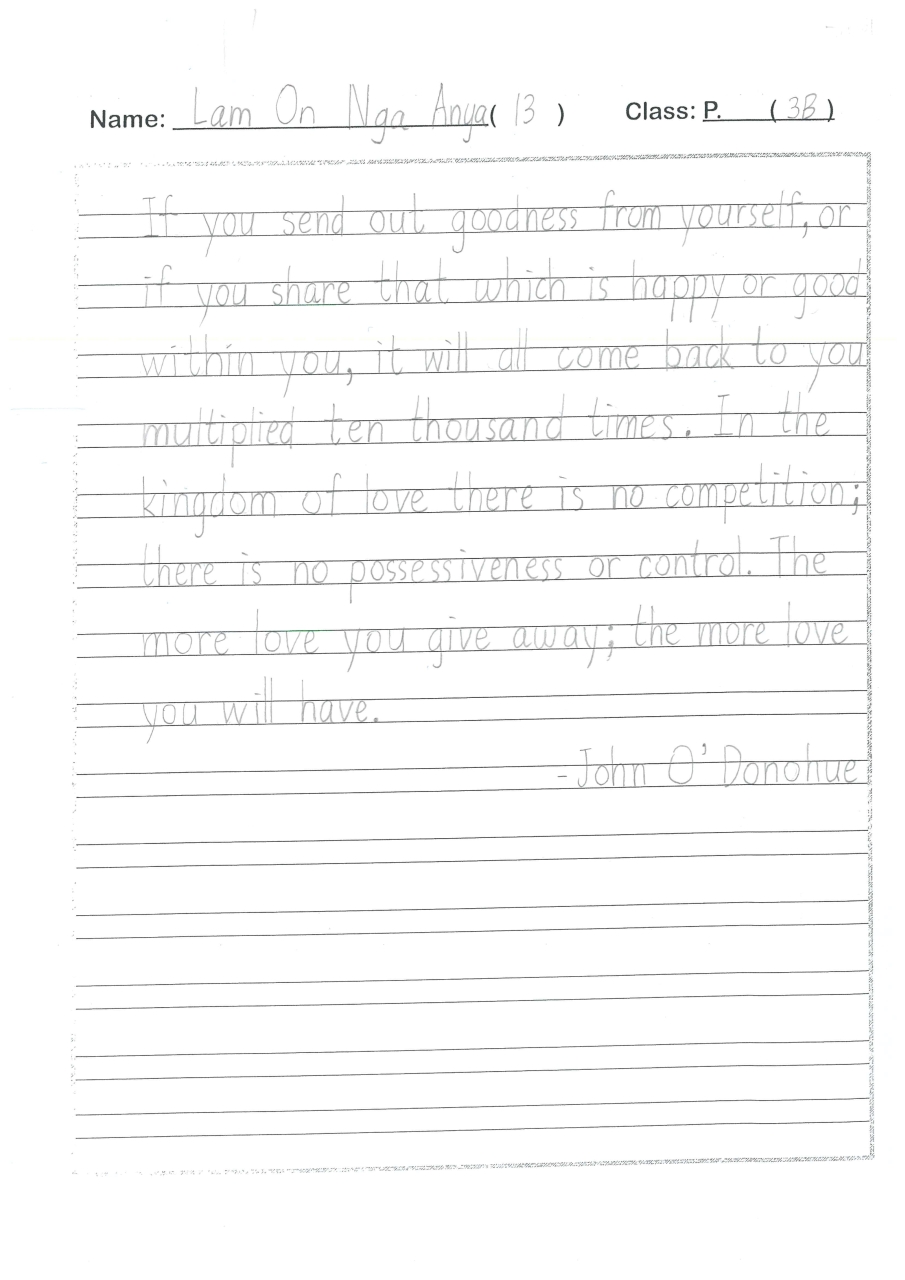 Name: Lam On Nga Anya( 13 ) Class: P. ( 3B )
If you send out goodness from yourself, or
if you share that which is happy or good
within you, it will all come back to you
multiplied ten thousand times. In the
kingdom of love there is no competition;
there is no possessiveness or control. The
more love you give away; the more love
you will have.
-John O' Donohue